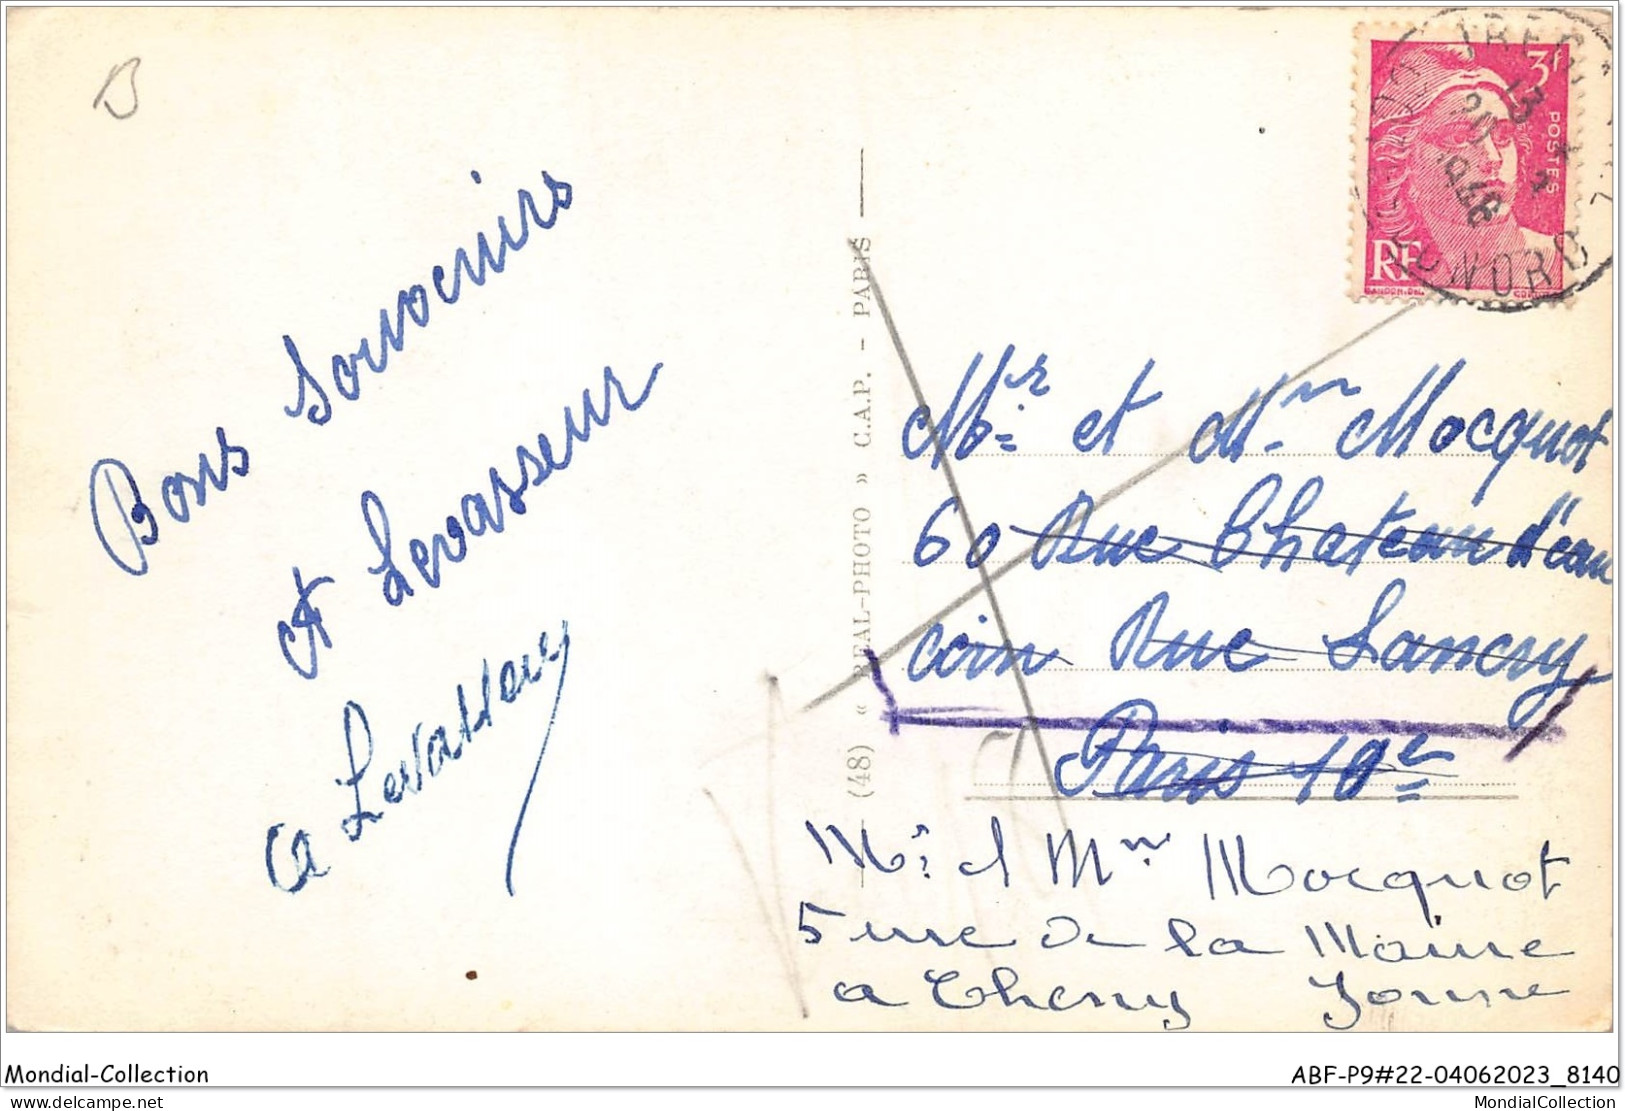 B
Bons Souvenirs
et Levasseur
A Levasseur
(48) « REAL-PHOTO » C.A.P. - PARIS
3f
POSTES
RF
13
20
1948
NORD
Mr et Mm Mocquot
60 Rue Chateau d'eau
coin Rue Lancry
Paris 10e
Mr et Mme Mocquot
5 rue de la Mairie
a Cheny Yonne
Mondial-Collection
ABF-P9#22-04062023_8140
delcampe.net
MondialCollection